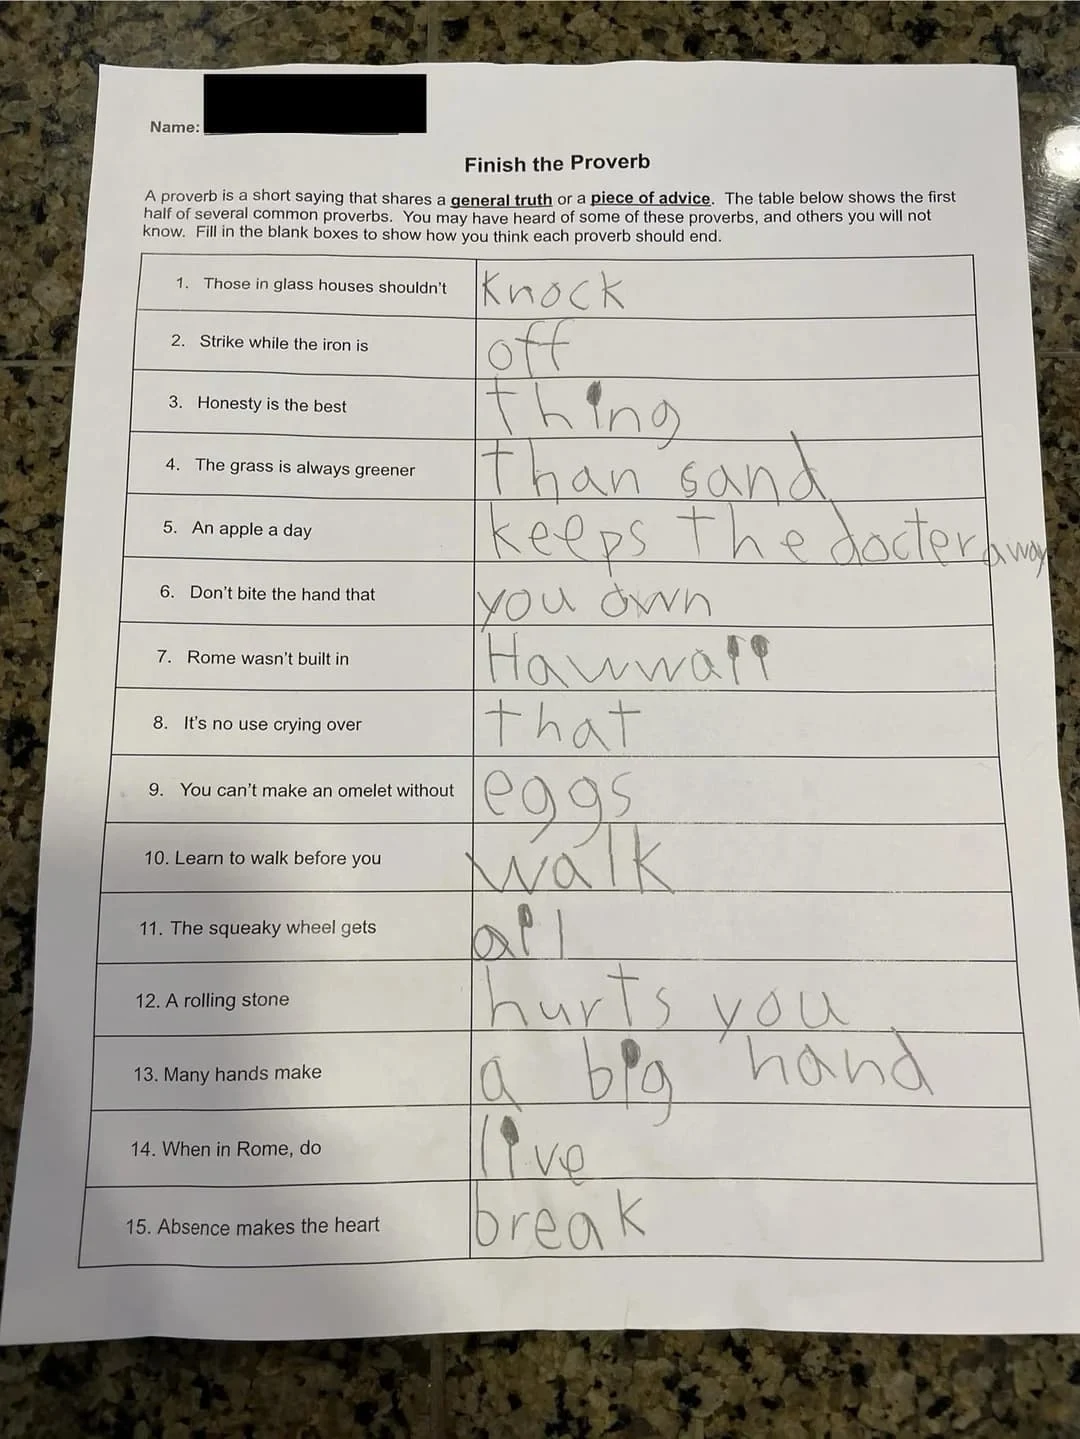 Name:
Finish the Proverb
A proverb is a short saying that shares a general truth or a piece of advice. The table below shows the first
half of several common proverbs. You may have heard of some of these proverbs, and others you will not
know. Fill in the blank boxes to show how you think each proverb should end.
1. Those in glass houses shouldn't knock
2. Strike while the iron is off
3. Honesty is the best thing
4. The grass is always greener than sand
5. An apple a day keeps the docter away
6. Don't bite the hand that you own
7. Rome wasn't built in Hawwaii
8. It's no use crying over that
9. You can't make an omelet without eggs
10. Learn to walk before you walk
11. The squeaky wheel gets ail
12. A rolling stone hurts you
13. Many hands make a big hand
14. When in Rome, do live
15. Absence makes the heart break